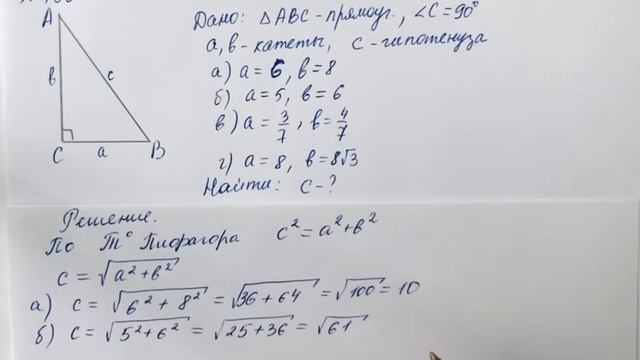 A
в
c
C
a
B
Дано: △ABC - прямоуг., ∠C=90°
a, в - катеты, c - гипотенуза
а) a=6, в=8
б) a=5, в=6
в) a=3/7, в=4/7
г) a=8, в=8√3
Найти: c-?
Решение.
По Т° Пифагора c²=a²+в²
c=√(a²+в²)
а) c=√(6²+8²)=√(36+64)=√100=10
б) c=√(5²+6²)=√(25+36)=√61